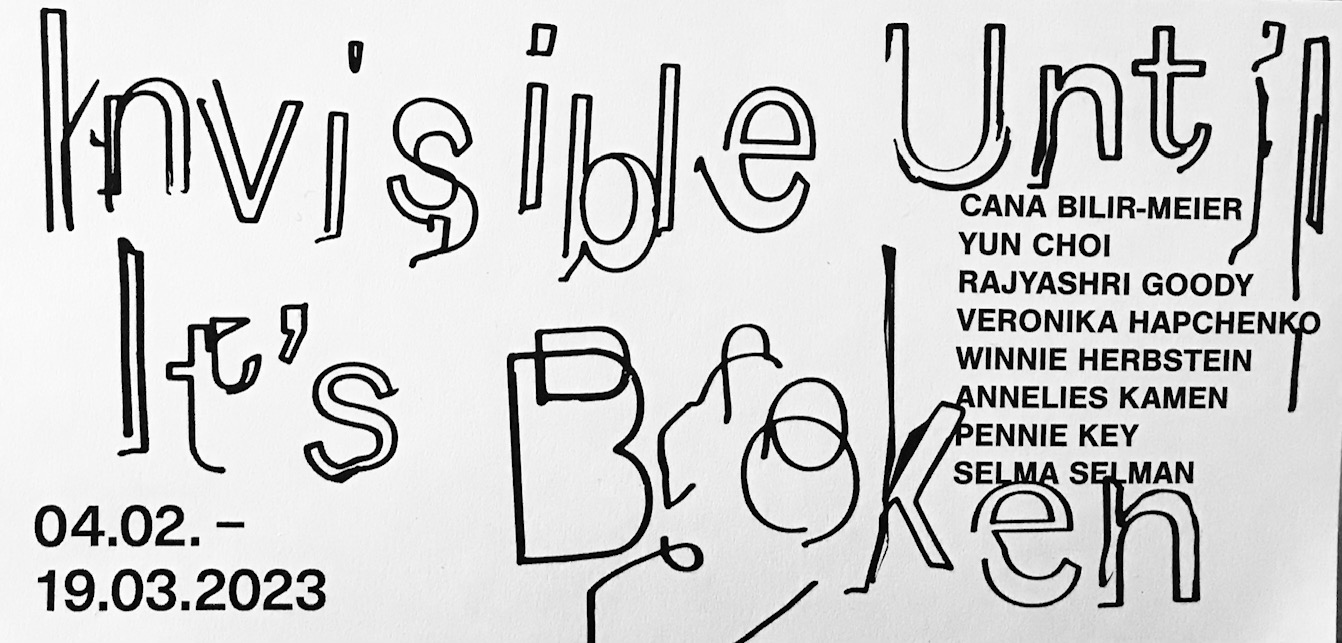 Invisible Until
CANA BILIR-MEIER
YUN CHOI
RAJYASHRI GOODY
VERONIKA HAPCHENKO
WINNIE HERBSTEIN
ANNELIES KAMEN
PENNIE KEY
SELMA SELMAN
It's Broken
04.02. –
19.03.2023